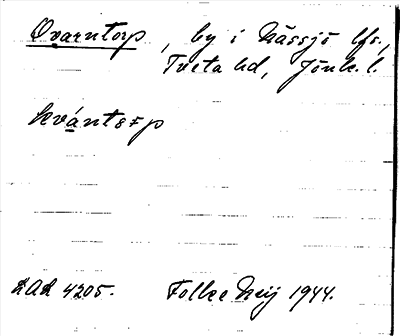 Qvarntorp, by i Nässjö lfs.,
Tveta hd, Jönk. l.
kvántsrp
LAL 4205. Folke Neij 1944.